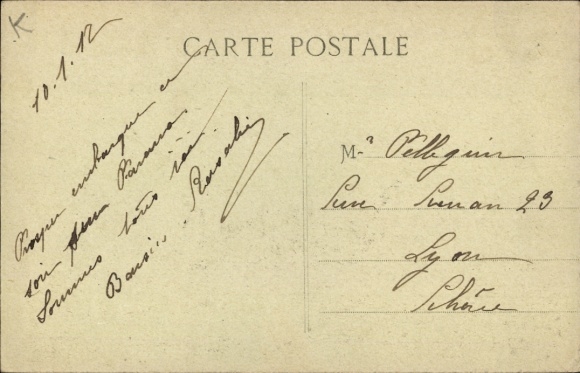 K
CARTE POSTALE
10.1.12
Prosper embarque ce
soir pour Parana
Sommes tous bien
Baisers. Rosalie
M-r Pellegrin
23
Lyon
Rhône